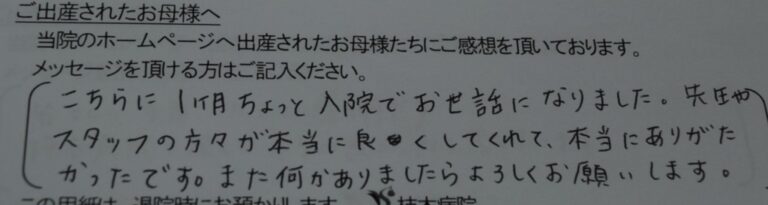 ご出産されたお母様へ
当院のホームページへ出産されたお母様たちにご感想を頂いております。
メッセージを頂ける方はご記入ください。
こちらに1ヶ月ちょっと入院でお世話になりました。先生や
スタッフの方々が本当に良くしてくれて、本当にありがた
かったです。また何かありましたらよろしくお願いします。
この用紙は、退院時にお預かりします